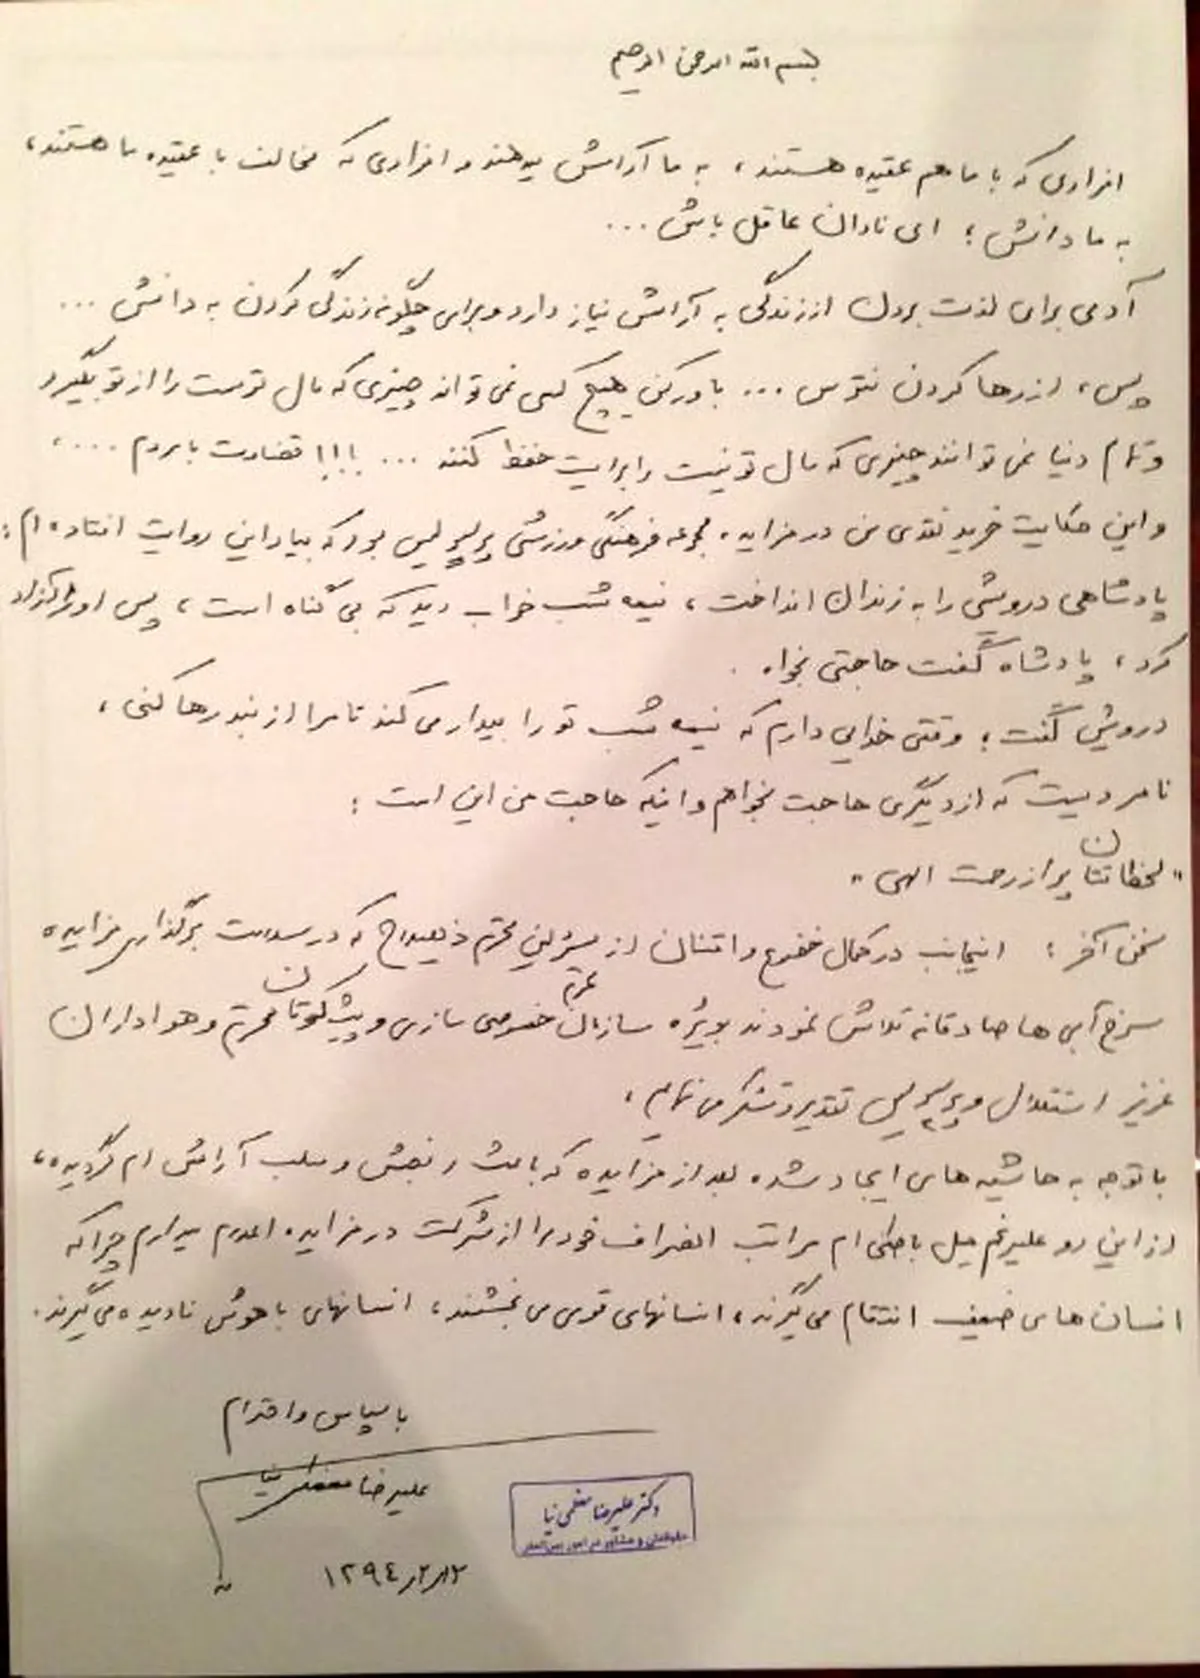 بسم الله الرحمن الرحیم
افرادی که با ما هم عقیده هستند، به ما آرامش میدهند و افرادی که مخالف با عقیده ما هستند،
به ما دانش؛ ای نادان عاقل باش ...
آدمی برای لذت بردن از زندگی به آرامش نیاز دارد و برای چگونه زندگی کردن به دانش ...
پس، از رها کردن نترس ... باور کن هیچ کس نمی تواند چیزی که مال توست را از تو بگیرد
و تمام دنیا نمی توانند چیزی که مال تو نیست را برایت حفظ کنند ... !!!! قضاوت با مردم ....،
و این حکایت خرید نقدی من در مزایده مجموعه فرهنگی ورزشی پرسپولیس بود که بیاد این روایت افتاده ام:
پادشاهی درویشی را به زندان انداخت، نیمه شب خواب دید که بی گناه است، پس او را آزاد
کرد، پادشاه گفت حاجتی بخواه.
درویش گفت؛ وقتی خدایی دارم که نیمه شب تو را بیدار می کند تا مرا از بند رها کنی،
نامردیست که از دیگری حاجت بخواهم و اینکه حاجت من این است:
"لحظاتتان پر از رحمت الهی"
سخن آخر: اینجانب در کمال خضوع و امتنان از مسئولین محترم ذیصلاح که در سلامت برگذاری مزایده
سرخ آبی ها صادقانه تلاش نمودند بویژه سازمان محترم خصوصی سازی و پیشکسوتان محترم و هواداران
عزیز استقلال و پرسپولیس تقدیر و تشکر می نمایم.
با توجه به حاشیه های ایجاد شده بعد از مزایده که باعث رنجش و سلب آرامش ام گردیده،
از این رو علیرغم میل باطنی ام مراتب انصراف خود را از شرکت در مزایده اعلام میدارم چرا که
انسان های ضعیف انتقام می گیرند، انسانهای قوی می بخشند، انسانهای باهوش نادیده می گیرند.
با سپاس و احترام
علیرضا معظمی نیا
دکتر علیرضا معظمی نیا
۱۳۹۴